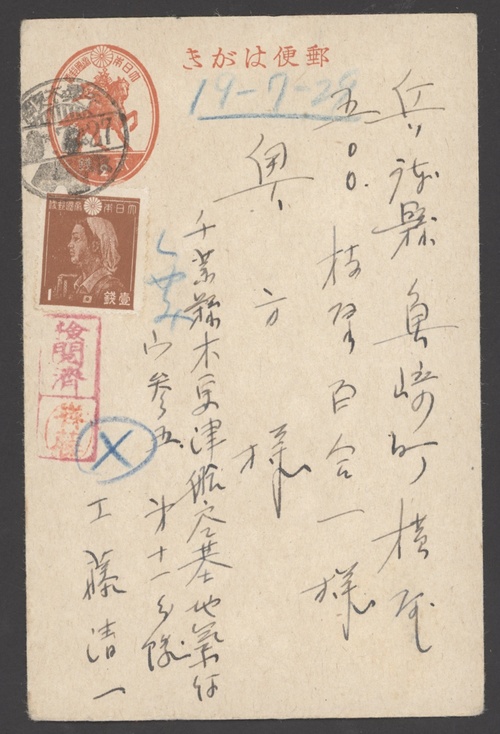 郵便はがき
大日本帝国郵便
27
19-7-29
大日本帝国郵便
1
壹銭
検閲済
兵庫縣魚崎町横屋
五〇〇
枝 百合一様
奥 方 様
千葉縣木更津航空基地氣付
参五 第十一分隊
工藤清一
X